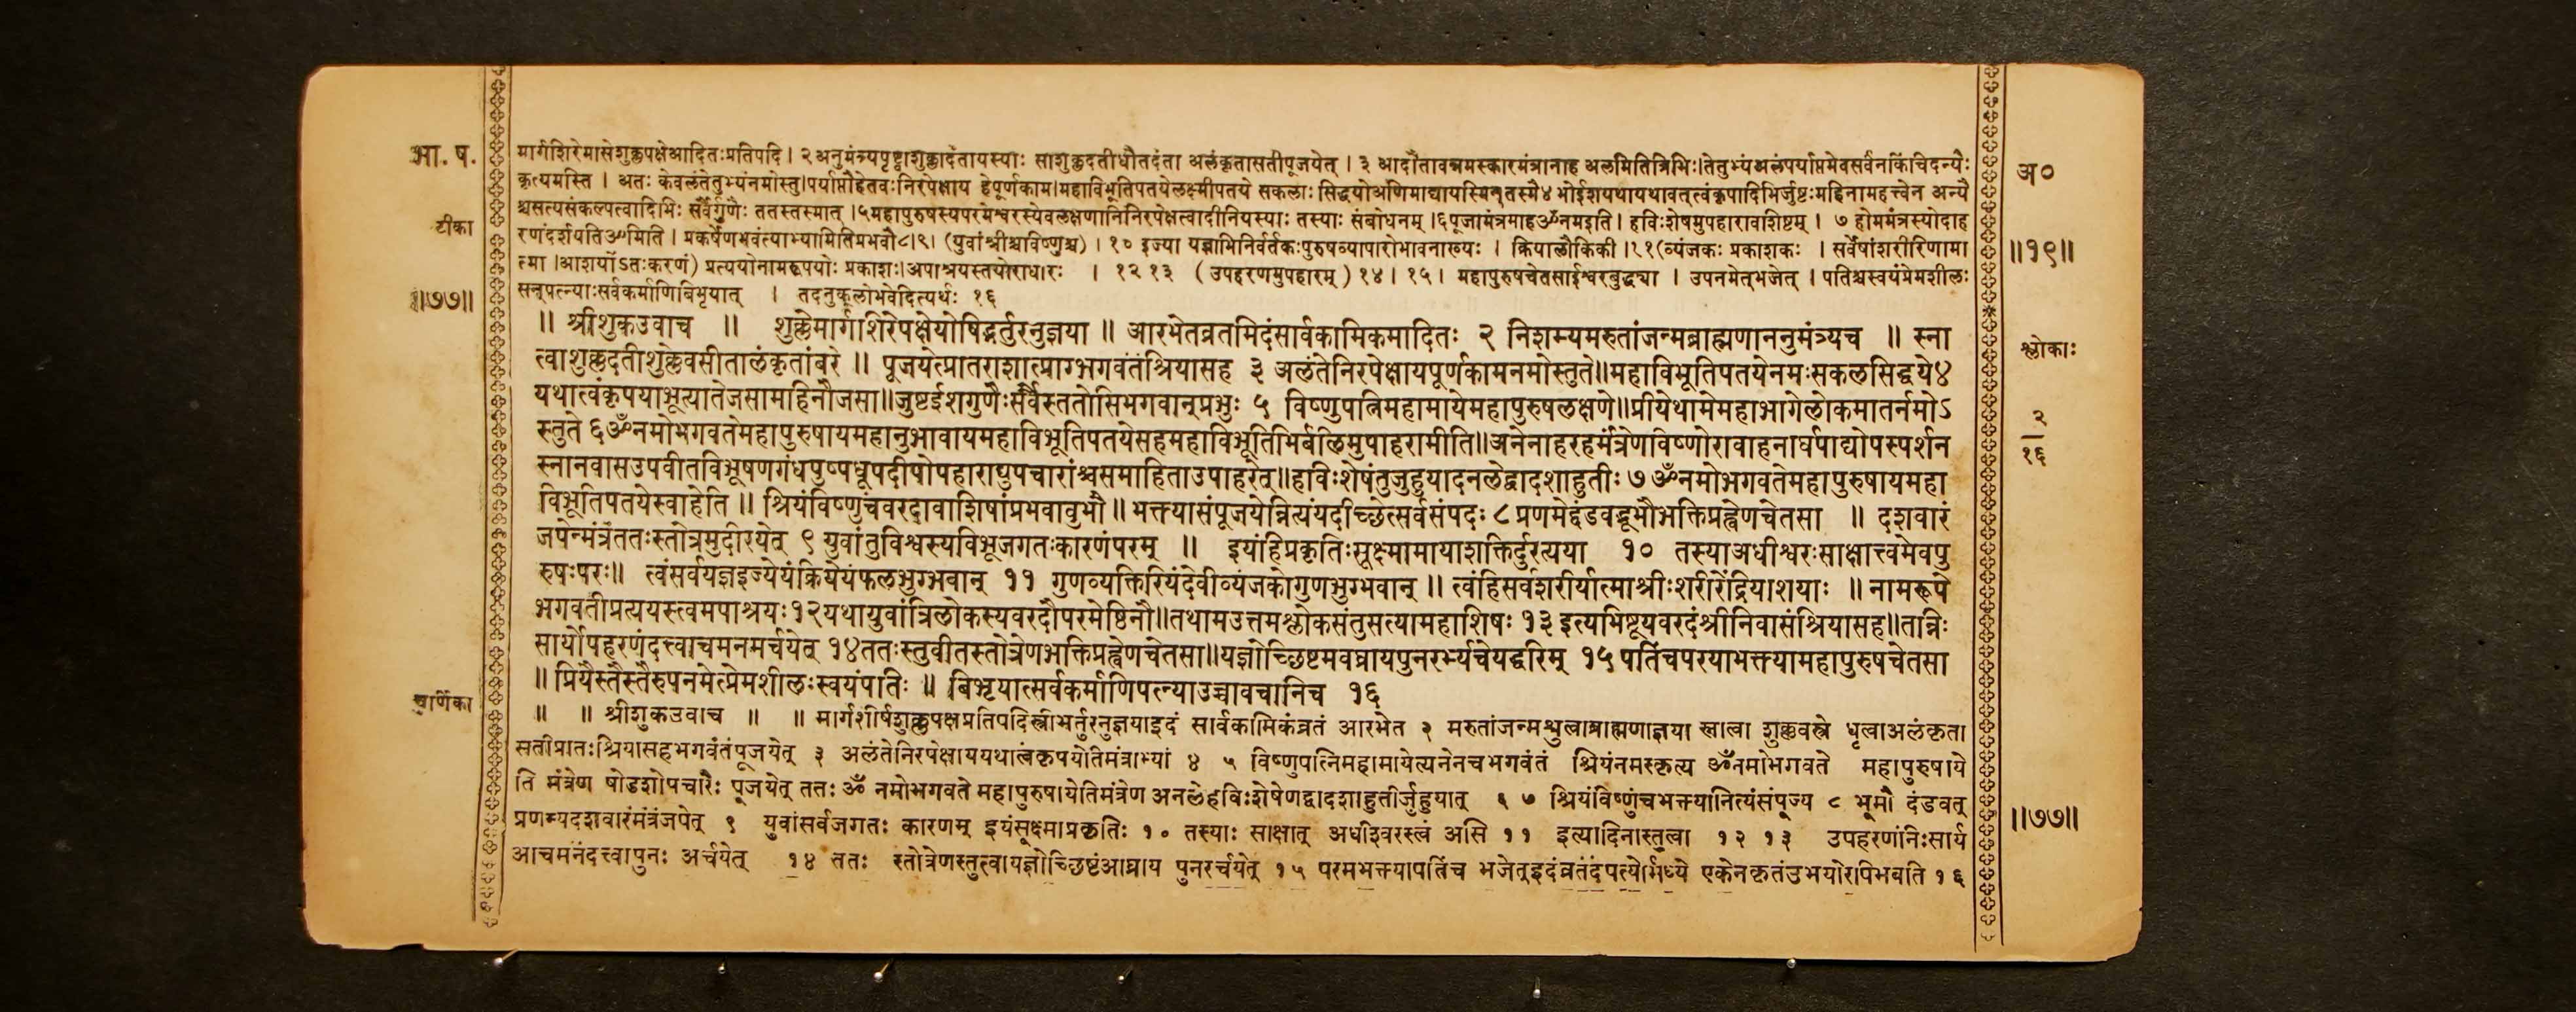 भा. ष.
टीका
॥७७॥
चूर्णिका
मार्गशिरेमासेशुक्लपक्षेआदितःप्रतिपदि । २ अनुमंत्र्यपृष्ट्वाशुक्लादंतायस्याः साशुक्लदतीधौतदंता अलंकृतासतीपूजयेत् । ३ आदौतावन्नमस्कारमंत्रानाह अलमितित्रिभिः।तेतुभ्यंअलंपर्याप्तमेवसर्वंनकिंचिदन्यैः
कृत्यमस्ति । अतः केवलंतेतुभ्यंनमोस्तु।पर्याप्तौहेतवःनिरपेक्षाय हेपूर्णकाम।महाविभूतिपतयेलक्ष्मीपतये सकलाः सिद्धयोअणिमाद्यायस्मिन्तस्मै४ भोईशयथायथावत्त्वंकृपादिभिर्जुष्टःमहिनामहत्त्वेन अन्यै
श्चसत्यसंकल्पत्वादिभिः सर्वैर्गुणैः ततस्तस्मात् ।५महापुरुषस्यपरमेश्वरस्येवलक्षणानिनिरपेक्षत्वादीनियस्याः तस्याः संबोधनम् ।६पूजामंत्रमाहॐनमइति । हविःशेषमुपहारावशिष्टम् । ७ होममंत्रस्योदाह
रणंदर्शयतिॐमिति । प्रकर्षेणभवंत्याभ्यामितिप्रभवौ८।९। (युवांश्रीश्चविष्णुश्च) । १० इज्या यज्ञाभिनिर्वर्तकःपुरुषव्यापारोभावनाख्यः । क्रियालौकिकी ।११(व्यंजकः प्रकाशकः । सर्वेषांशरीरिणामा
त्मा ।आशयोंऽतःकरणं) प्रत्ययोनामरूपयोः प्रकाशः।अपाश्रयस्तयोराधारः । १२ १३ (उपहरणमुपहारम्) १४। १५। महापुरुषचेतसाईश्वरबुद्ध्या । उपनमेत्भजेत् । पतिश्चस्वयंप्रेमशीलः
सन्पत्न्याःसर्वकर्माणिबिभृयात् । तदनुकूलोभवेदित्यर्थः १६
॥ श्रीशुकउवाच ॥ शुक्लेमार्गशिरेपक्षेयोषिद्भर्तुरनुज्ञया ॥ आरभेतव्रतमिदंसार्वकामिकमादितः २ निशम्यमरुतांजन्मब्राह्मणाननुमंत्र्यच ॥ स्ना
त्वाशुक्लदतीशुक्लेवसीतालंकृतांबरे ॥ पूजयेत्प्रातराशात्प्राग्भगवंतंश्रियासह ३ अलंतेनिरपेक्षायपूर्णकामनमोस्तुते॥महाविभूतिपतयेनमःसकलसिद्धये४
यथात्वंकृपयाभूत्यातेजसामहिनौजसा॥जुष्टईशगुणैःसर्वैस्ततोसिभगवान्प्रभुः ५ विष्णुपत्निमहामायेमहापुरुषलक्षणे॥प्रीयेथामेमहाभागेलोकमातर्नमोऽ
स्तुते ६ॐनमोभगवतेमहापुरुषायमहानुभावायमहाविभूतिपतयेसहमहाविभूतिभिर्बलिमुपाहरामीति॥अनेनाहरहर्मंत्रेणविष्णोरावाहनार्घपाद्योपस्पर्शन
स्नानवासउपवीतविभूषणगंधपुष्पधूपदीपोपहाराद्युपचारांश्चसमाहिताउपाहरेत्॥हविःशेषंतुजुहुयादनलेद्वादशाहुतीः ७ॐनमोभगवतेमहापुरुषायमहा
विभूतिपतयेस्वाहेति ॥ श्रियंविष्णुंचवरदावाशिषांप्रभवावुभौ ॥ भक्त्यासंपूजयेन्नित्यंयदीच्छेत्सर्वसंपदः ८ प्रणमेद्दंडवद्भूमौभक्तिप्रह्वेणचेतसा ॥ दशवारं
जपेन्मंत्रंततःस्तोत्रमुदीरयेत् ९ युवांतुविश्वस्यविभूजगतःकारणंपरम् ॥ इयंहिप्रकृतिःसूक्ष्मामायाशक्तिर्दुरत्यया १० तस्याअधीश्वरःसाक्षात्त्वमेवपु
रुषःपरः॥ त्वंसर्वयज्ञइज्येयंक्रियेयंफलभुग्भवान् ११ गुणव्यक्तिरियंदेवीव्यंजकोगुणभुग्भवान् ॥ त्वंहिसर्वशरीर्यात्माश्रीःशरीरेंद्रियाशयाः ॥ नामरूपे
भगवतीप्रत्ययस्त्वमपाश्रयः१२यथायुवांत्रिलोकस्यवरदौपरमेष्ठिनौ॥तथामउत्तमश्लोकसंतुसत्यामहाशिषः १३ इत्यभिष्टूयवरदंश्रीनिवासंश्रियासह॥तान्निः
सार्योपहरणंदत्त्वाचमनमर्चयेत् १४ततःस्तुवीतस्तोत्रेणभक्तिप्रह्वेणचेतसा॥यज्ञोच्छिष्टमवघ्रायपुनरभ्यर्चयेद्धरिम् १५ पतिंचपरयाभक्त्यामहापुरुषचेतसा
॥ प्रियैस्तैस्तैरुपनमेत्प्रेमशीलःस्वयंपतिः ॥ बिभृयात्सर्वकर्माणिपत्न्याउच्चावचानिच १६
॥ ॥ श्रीशुकउवाच ॥ ॥ मार्गशीर्षशुक्लपक्षप्रतिपदिस्त्रीभर्तुरनुज्ञयाइदं सार्वकामिकंव्रतं आरभेत २ मरुतांजन्मश्रुत्वाब्राह्मणाज्ञया स्नात्वा शुक्लवस्त्रे धृत्वाअलंकृता
सतीप्रातःश्रियासहभगवंतंपूजयेत् ३ अलंतेनिरपेक्षाययथात्वंकृपयेतिमंत्राभ्यां ४ ५ विष्णुपत्निमहामायेत्यनेनचभगवंतं श्रियंनमस्कृत्य ॐनमोभगवते महापुरुषाये
ति मंत्रेण षोडशोपचारैः पूजयेत् ततः ॐ नमोभगवते महापुरुषायेतिमंत्रेण अनलेहविःशेषेणद्वादशाहुतीर्जुहुयात् ६ ७ श्रियंविष्णुंचभक्त्यानित्यंसंपूज्य ८ भूमौ दंडवत्
प्रणम्यदशवारंमंत्रंजपेत् ९ युवांसर्वजगतः कारणम् इयंसूक्ष्माप्रकृतिः १० तस्याः साक्षात् अधीश्वरस्त्वं असि ११ इत्यादिनास्तुत्वा १२ १३ उपहरणंनिःसार्य
आचमनंदत्त्वापुनः अर्चयेत् १४ ततः स्तोत्रेणस्तुत्वायज्ञोच्छिष्टंआघ्राय पुनरर्चयेत् १५ परमभक्त्यापतिंच भजेत्इदंव्रतंदंपत्योर्मध्ये एकेनकृतंउभयोरपिभवति १६
अ०
॥१९॥
श्लोकाः
२
१६
॥७७॥